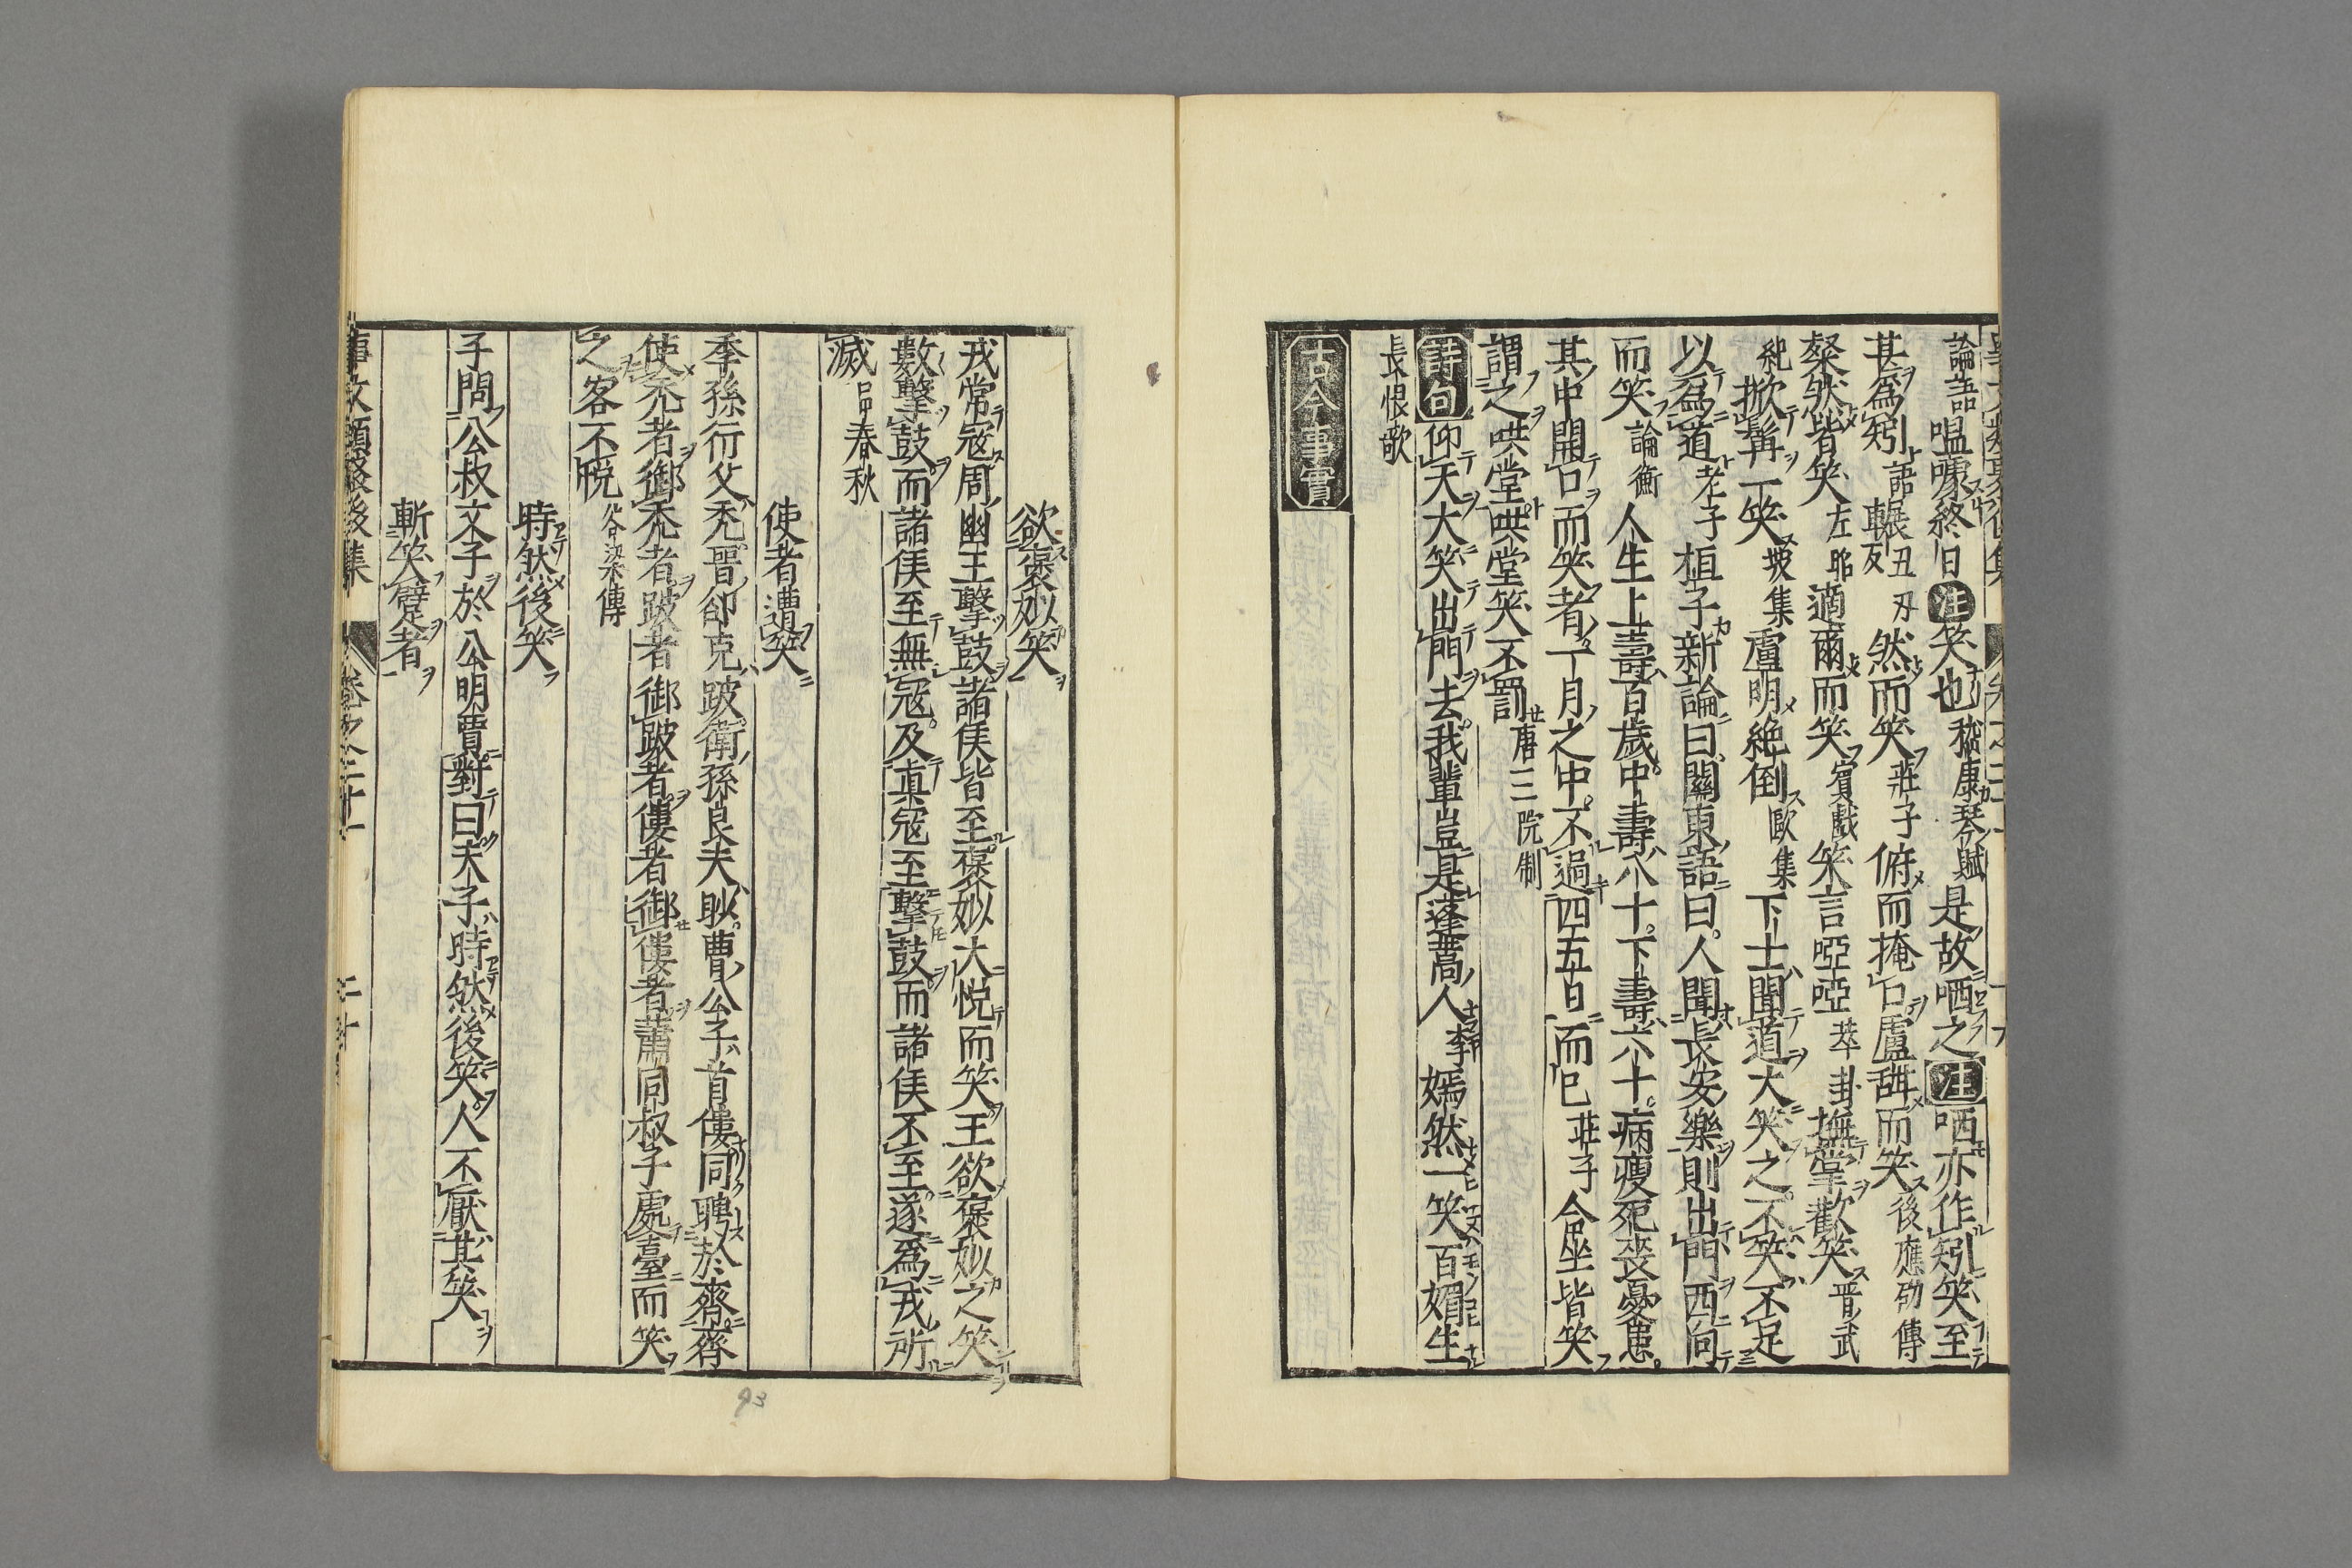 論語嗢噱終日注笑也嵇康琴賦是故哂之注哂亦作矧笑至
甚爲矧語䡅丑忍反然而笑莊子俯而掩口盧胡而笑後應劭傳
粲然皆笑左昭適爾而笑賓戲笑言啞啞萃卦撫掌歡笑晋武
紀掀髯一笑坡集盧明絶倒歐集下士聞道大笑之不笑不足
以爲道老子桓子新論曰關東語曰人聞長安樂則出門西向
而笑論衡人生上壽百歲中壽八十下壽六十病瘦死喪憂患
其中開口而笑者一月之中不過四五日而已莊子合坐皆笑
謂之哄堂哄堂笑不罰唐三院制
詩句仰天大笑出門去我輩豈是蓬蒿人李嫣然一笑百媚生
長恨歌
古今事實
欲褒姒笑
戎常寇周幽王擊鼓諸侯皆至褒姒大悅而笑王欲褒姒之笑
數擊鼓而諸侯至無寇及真寇至擊鼓而諸侯不至遂爲戎所
滅呂春秋
使者遭笑
季孫行父禿晋郤克跛衛孫良夫眇曹公子首僂同聘於齊齊
使禿者御禿者跛者御跛者僂者御僂者蕭同叔子處臺而笑
之客不悅谷梁傳
時然後笑
子問公叔文子於公明賈對曰夫子時然後笑人不厭其笑
斬笑躄者
事文類聚後集 卷之二十一 二十
93